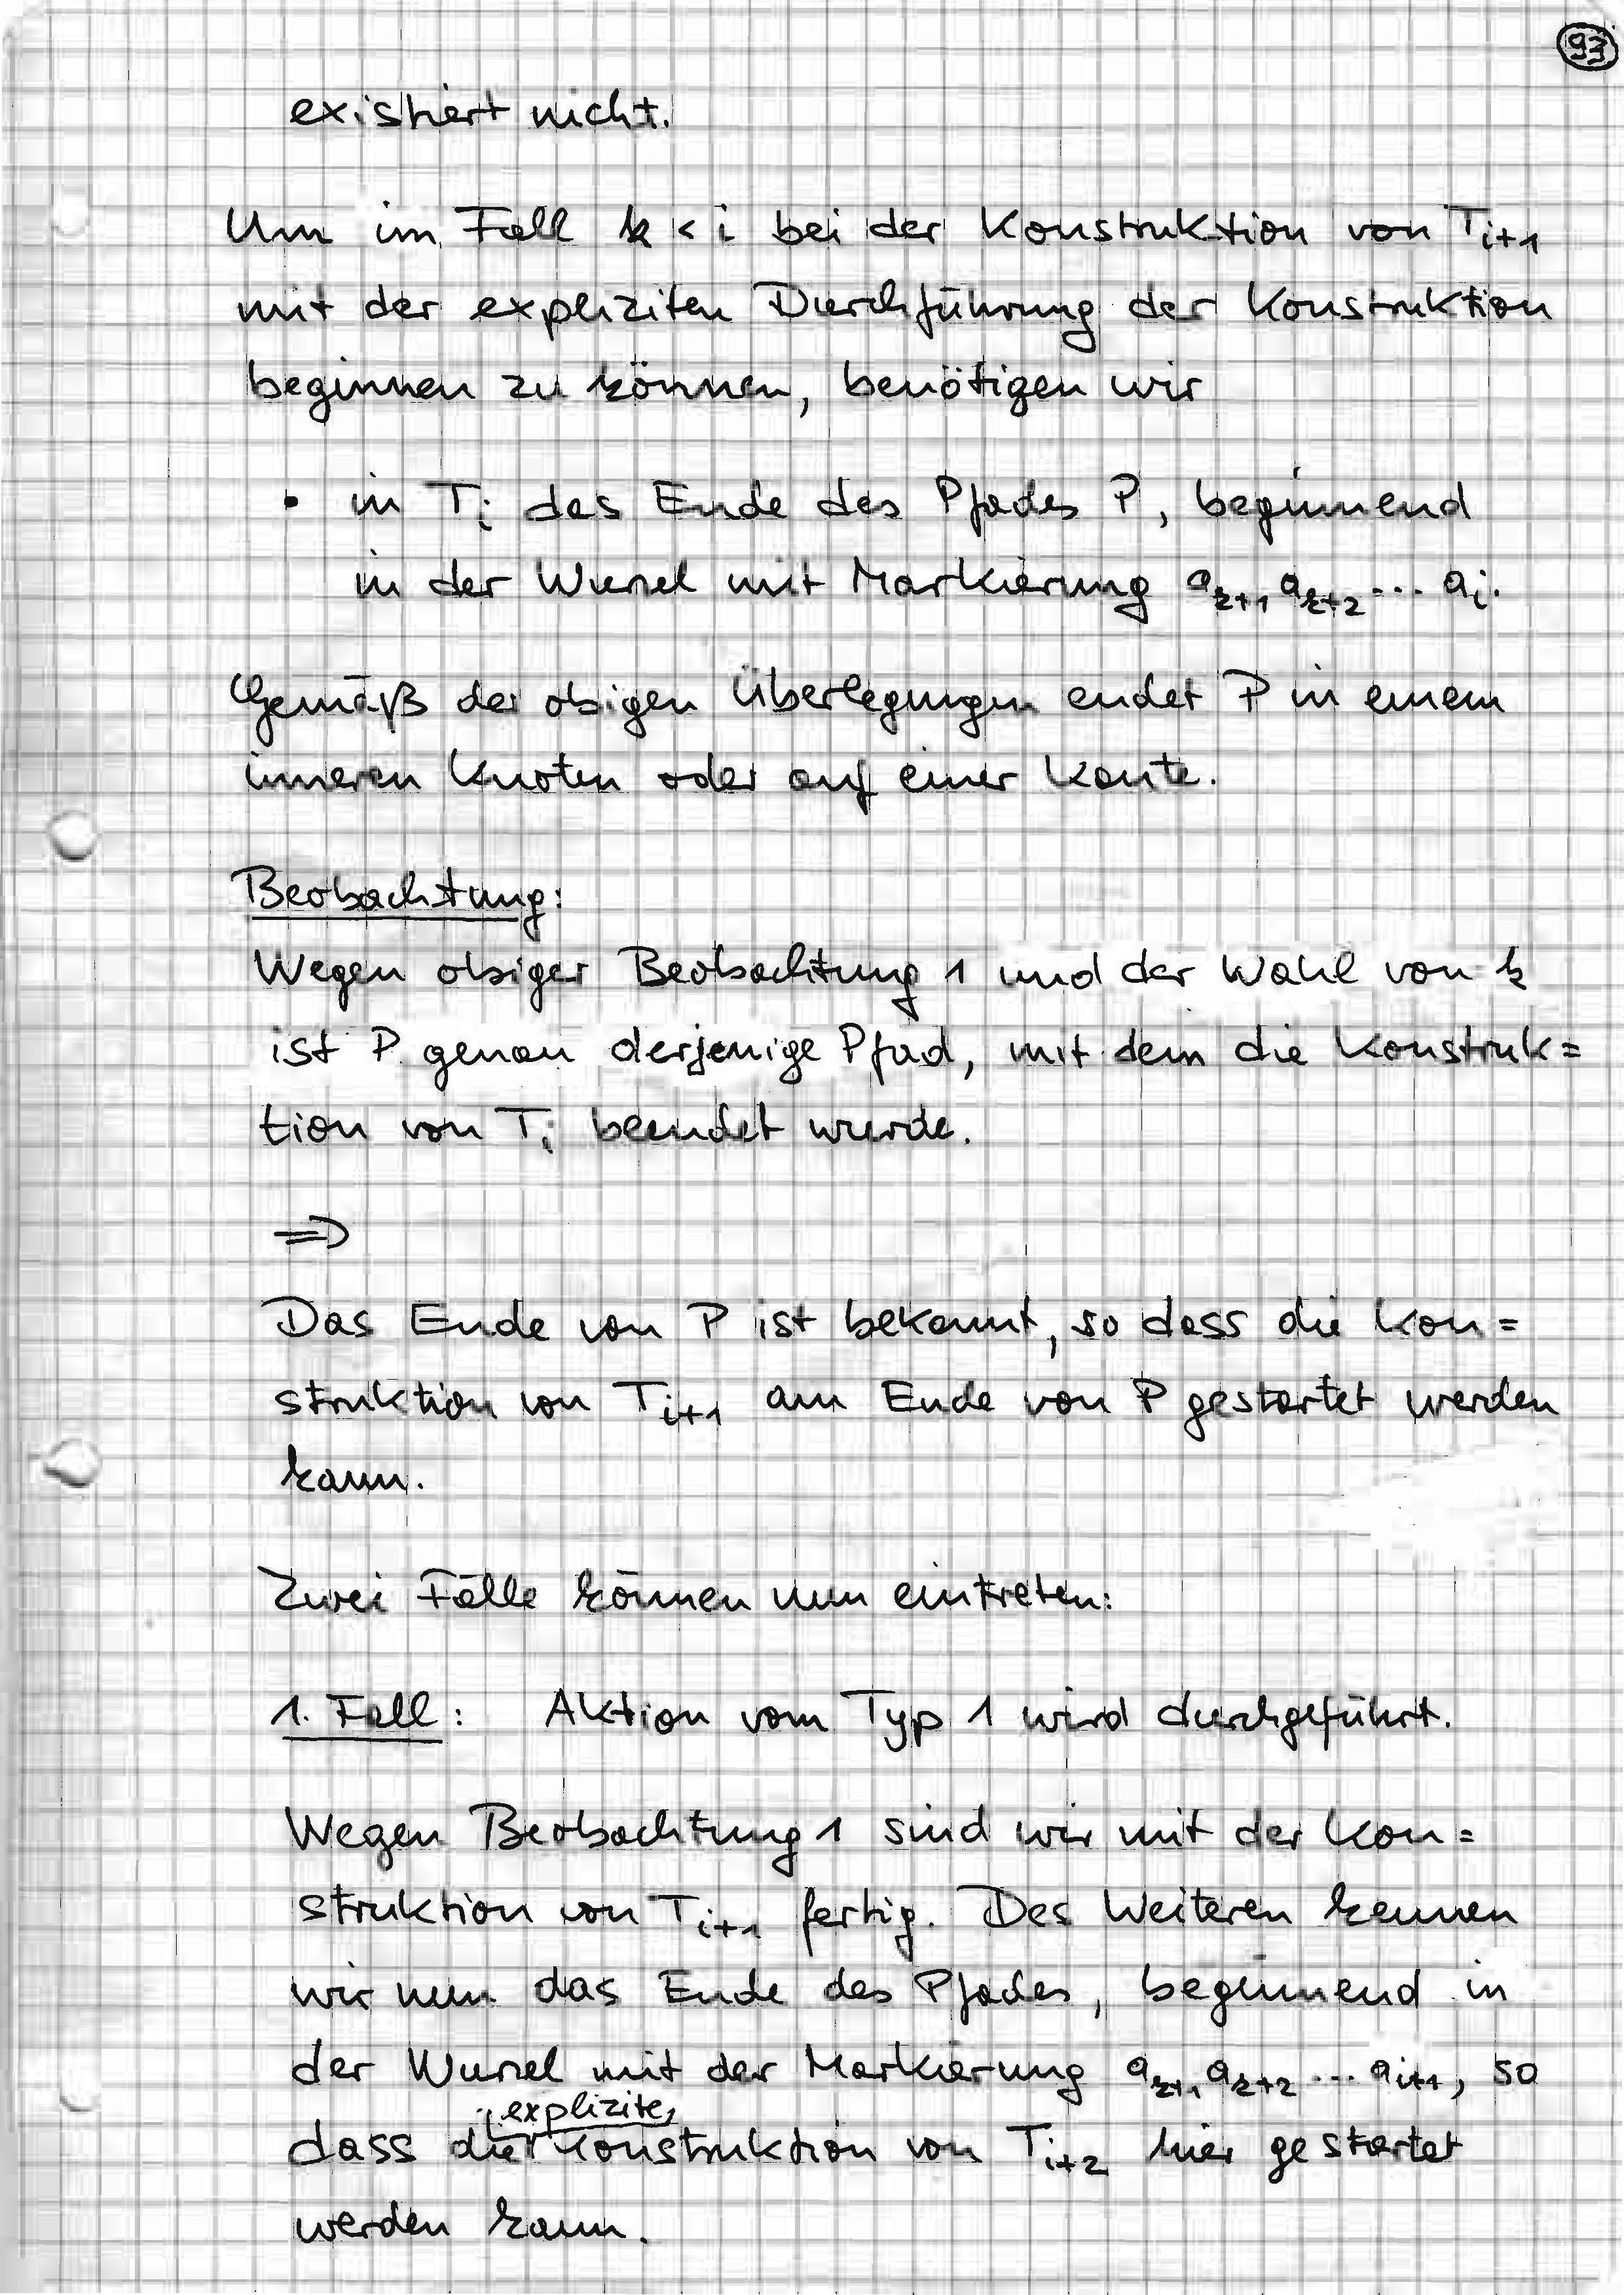 93
existiert nicht.
Um im Fall k < i bei der Konstruktion von T_{i+1}
mit der expliziten Durchführung der Konstruktion
beginnen zu können, benötigen wir
• in T_i das Ende des Pfades P, beginnend
in der Wurzel mit Markierung a_{k+1} a_{k+2} ... a_i.
Gemäß der obigen Überlegungen endet P in einem
inneren Knoten oder auf einer Kante.
Beobachtung:
Wegen obiger Beobachtung 1 und der Wahl von k
ist P genau derjenige Pfad, mit dem die Konstruk=
tion von T_i beendet wurde.
⇒
Das Ende von P ist bekannt, so dass die Kon=
struktion von T_{i+1} am Ende von P gestartet werden
kann.
Zwei Fälle können nun eintreten:
1. Fall: Aktion vom Typ 1 wird durchgeführt.
Wegen Beobachtung 1 sind wir mit der Kon=
struktion von T_{i+1} fertig. Des Weiteren kennen
wir nun das Ende des Pfades, beginnend in
der Wurzel mit der Markierung a_{k+1} a_{k+2} ... a_{i+1}, so
dass die explizite Konstruktion von T_{i+2} hier gestartet
werden kann.